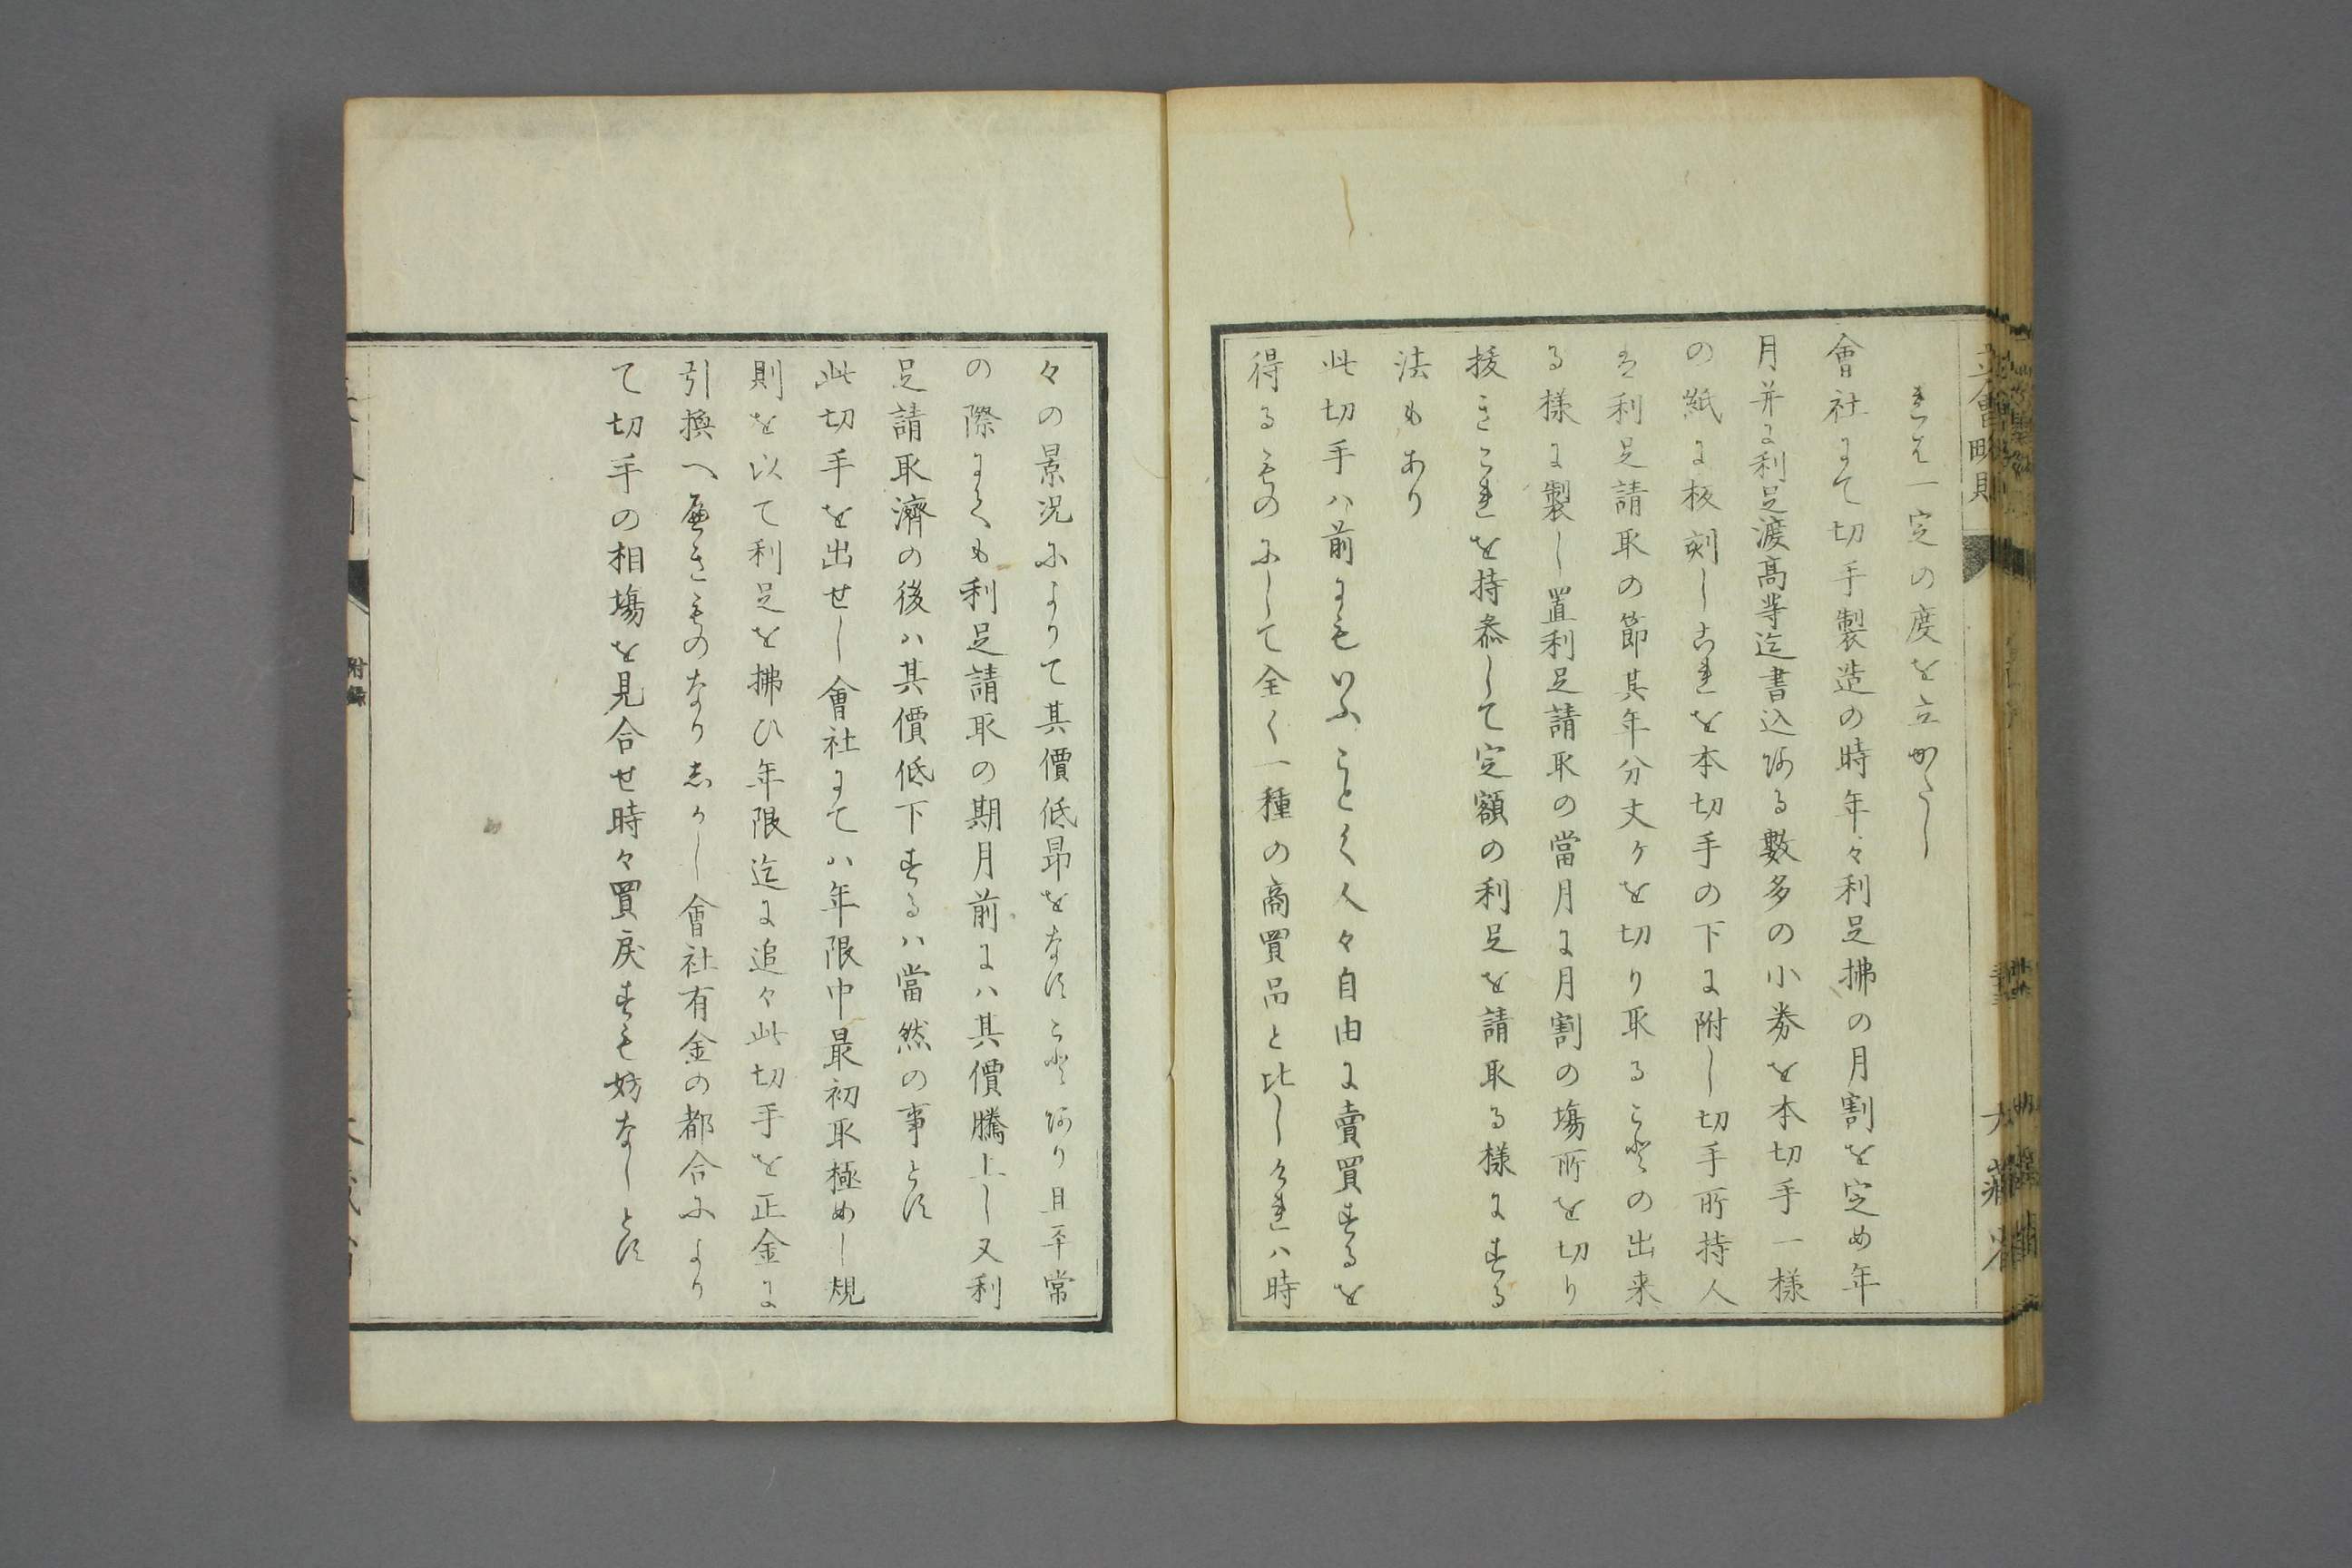 立會略則
大藏省
きは一定の度を立かたし
會社にて切手製造の時年々利足拂の月割を定め年
月并に利足渡高等迄書込ある數多の小券を本切手一樣
の紙に板刻しこれを本切手の下に附し切手所持人
は利足請取の節其年分丈ケを切り取ることの出来
る樣に製し置利足請取の當月に月割の塲所を切り
拔きこれを持參して定額の利足を請取る樣にする
法もあり
此切手ハ前にもいふことく人々自由に賣買するを
得るものにして全く一種の商買品と比しけれハ時
々の景況によりて其價低昻をなすことあり且平常
の際にても利足請取の期月前にハ其價騰上し又利
足請取濟の後ハ其價低下するハ當然の事とす
此切手を出せし會社にてハ年限中最初取極めし規
則を以て利足を拂ひ年限迄に追々此切手を正金に
引換へ發きものなりしかし會社有金の都合により
て切手の相塲を見合せ時々買戻すも妨なしとす
附録